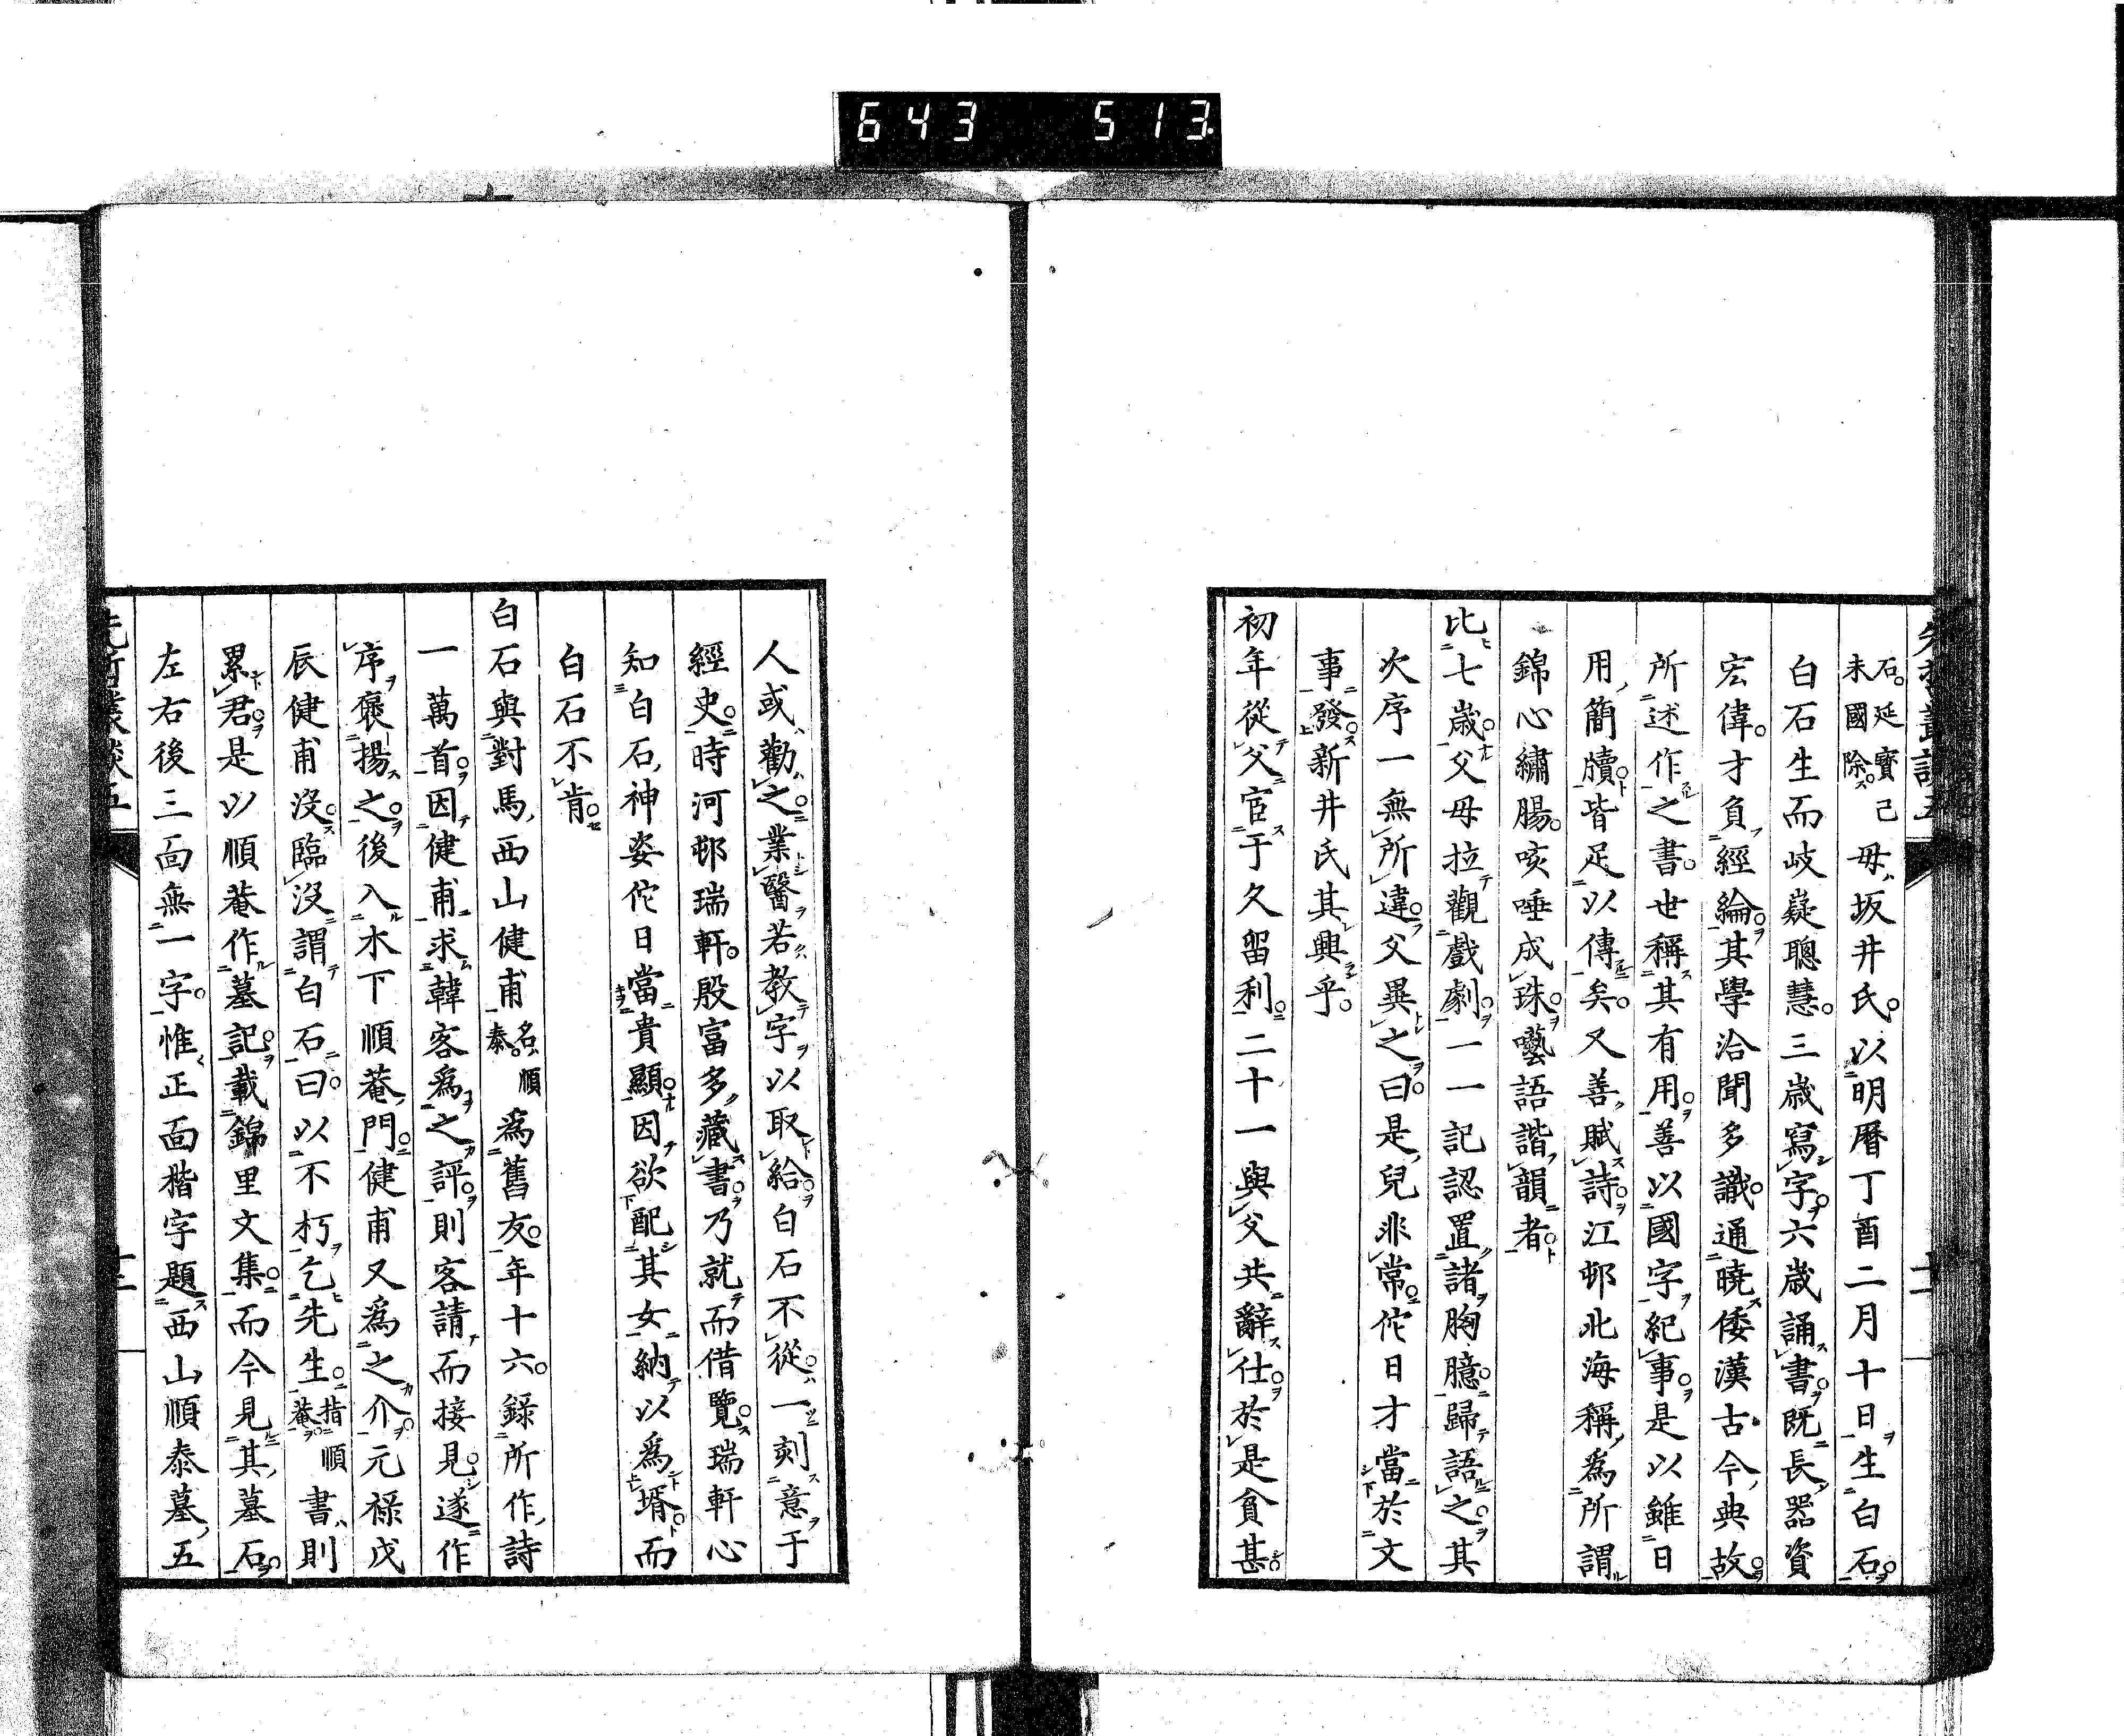 643 513
石。延寶己
未國除。母坂井氏。以明曆丁酉二月十日生白石。
白石生而岐嶷聰慧。三歲寫字。六歲誦書。既長器資
宏偉。才負經綸。其學洽聞多識。通曉倭漢古今典故。
所述作之書。世稱其有用。善以國字紀事。是以雖日
用簡牘。皆足以傳矣。又善賦詩。江邨北海稱為所謂
錦心繡腸。咳唾成珠。囈語諧韻者。
比七歲。父母拉觀戲劇。一一記認置諸胸臆。歸語之。其
次序一無所違。父異之。曰是兒非常。佗日才當於文
事發。新井氏其興乎。
初年從父宦于久留利。二十一與父共辭仕。於是貧甚。
人或勸之業醫若教字以取給。白石不從。一刻意于
經史。時河邨瑞軒。殷富多藏書。乃就而借覽。瑞軒心
知白石神姿佗日當貴顯。因欲配其女納以為壻。而
白石不肯。
白石與對馬西山健甫名順
泰。為舊友。年十六。錄所作詩
一萬首。因健甫求韓客為之評。則客請而接見。遂作
序褒揚之。後入木下順菴門。健甫又為之介。元祿戊
辰健甫沒。臨沒謂白石曰。以不朽乞先生。指順
菴。書則
累君。是以順菴作墓記。載錦里文集。而今見其墓石。
左右後三面無一字。惟正面楷字題西山順泰墓五
先哲叢談五